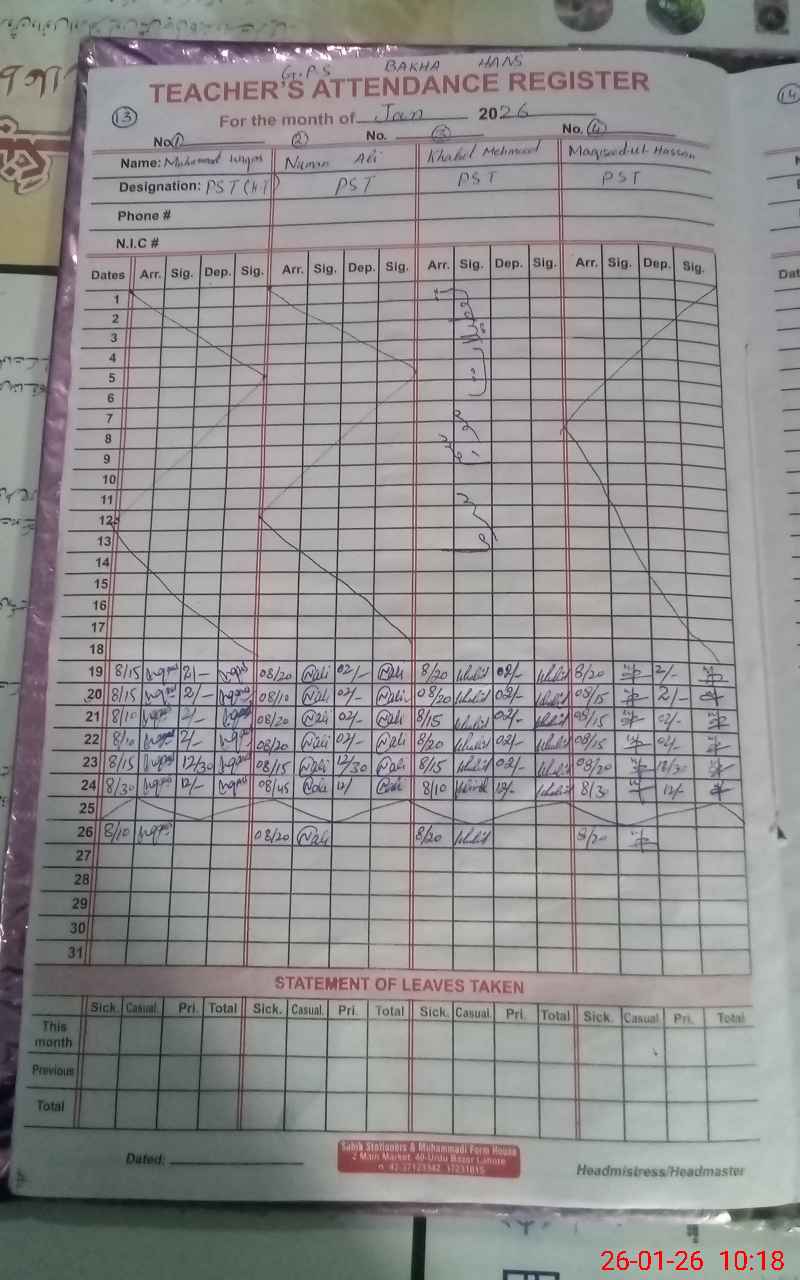 G.P.S BAKHA HANS
TEACHER'S ATTENDANCE REGISTER
(13) For the month of Jan 2026
No. (1) (2) No. (3) No. (4)
Name: Muhammad Waqas Numan Ali Khalid Mehmood Maqsood-ul-Hassan
Designation: PST (HT) PST PST PST
Phone #
N.I.C #
Dates Arr. Sig. Dep. Sig. Arr. Sig. Dep. Sig. Arr. Sig. Dep. Sig. Arr. Sig. Dep. Sig.
1
2
3
4
5
6
7
8
9
10
11
12
13
14
15
16
17
18
19 8/15 2/- 08/20 Nali 02/- Nali 8/20 Khalid 02/- Khalid 8/20 2/-
20 8/15 2/- 08/10 Nali 02/- Nali 08/20 Khalid 02/- Khalid 08/15 2/-
21 8/10 2/- 08/20 Nali 02/- Nali 8/15 Khalid 02/- Khalid 08/15 02/-
22 8/10 2/- 08/20 Nali 02/- Nali 8/20 Khalid 02/- Khalid 08/15 02/-
23 8/15 12/30 08/15 Nali 12/30 Nali 8/15 Khalid 02/- Khalid 08/20 12/30
24 8/30 12/- 08/45 Nali 12/ Nali 8/10 Khalid 12/- Khalid 8/30 12/-
25
26 8/10 08/20 Nali 8/20 Khalid 8/20
27
28
29
30
31
STATEMENT OF LEAVES TAKEN
Sick. Casual. Pri. Total Sick. Casual. Pri. Total Sick. Casual. Pri. Total Sick. Casual Pri. Total
This month
Previous
Total
Dated:
Sabik Stationers & Muhammadi Form House
2 Main Market, 40-Urdu Bazar Lahore
Headmistress/Headmaster
(14)
Dat
26-01-26 10:18